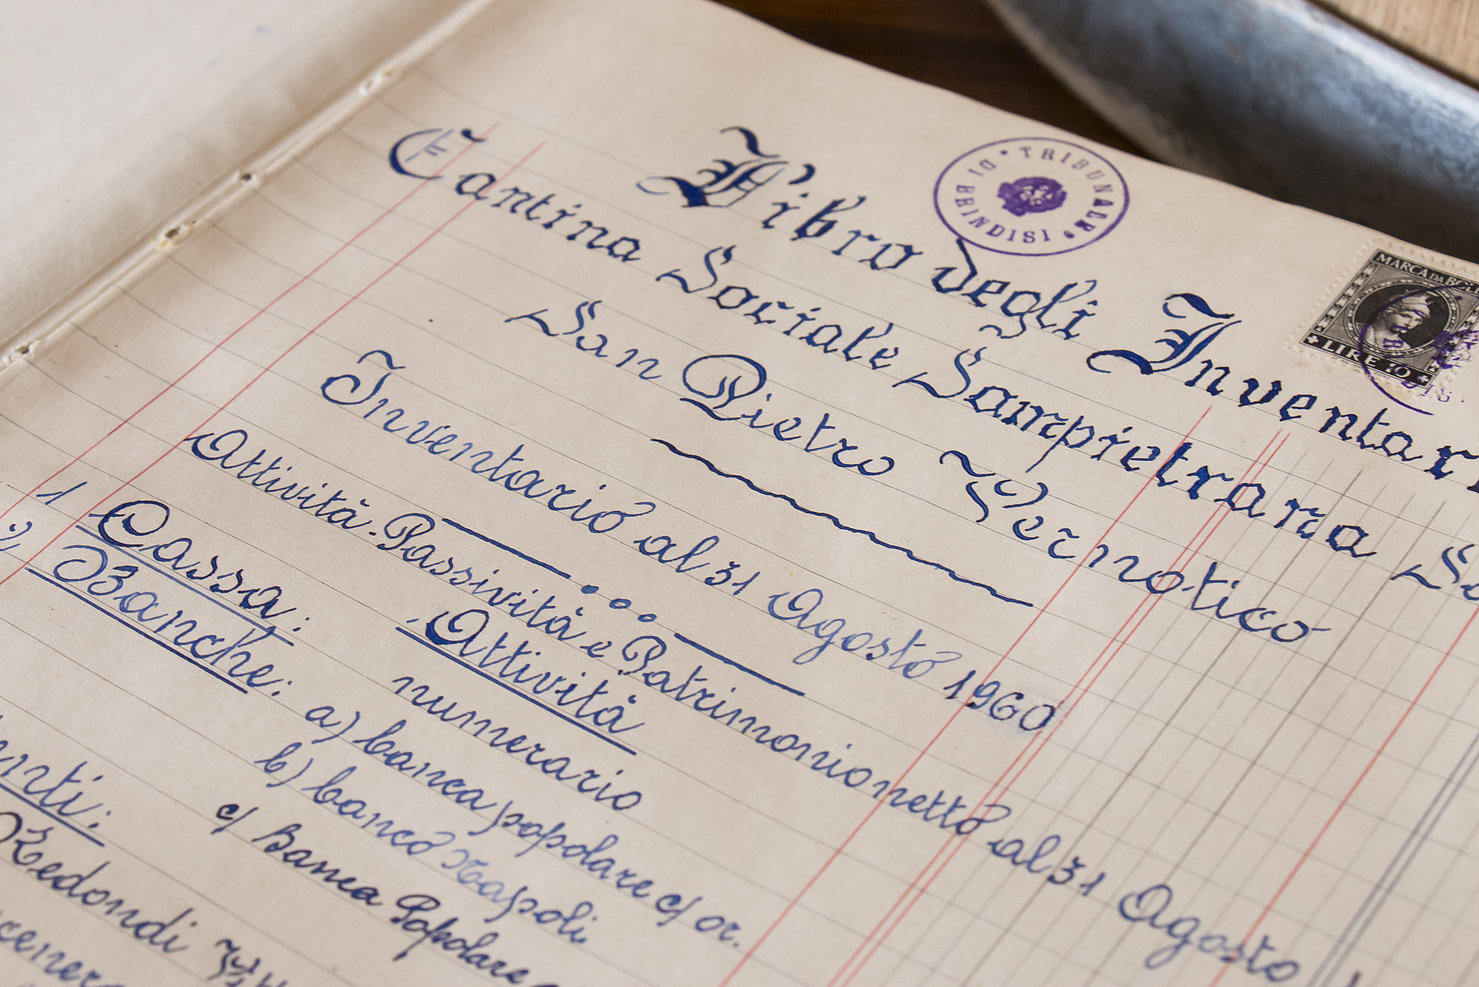 Libro degli Inventari
Cantina Sociale Sampietrana
San Pietro Vernotico
Inventario al 31 Agosto 1960
Attività-Passività e Patrimonio netto al 31 Agosto
Attività
1 Cassa: numerario
2 Banche: a) banca popolare c/ or.
b) banco Napoli
c/ Banca Popolare
Redondi
TRIBUNALE DI BRINDISI
MARCA DA BOLLO
LIRE 10